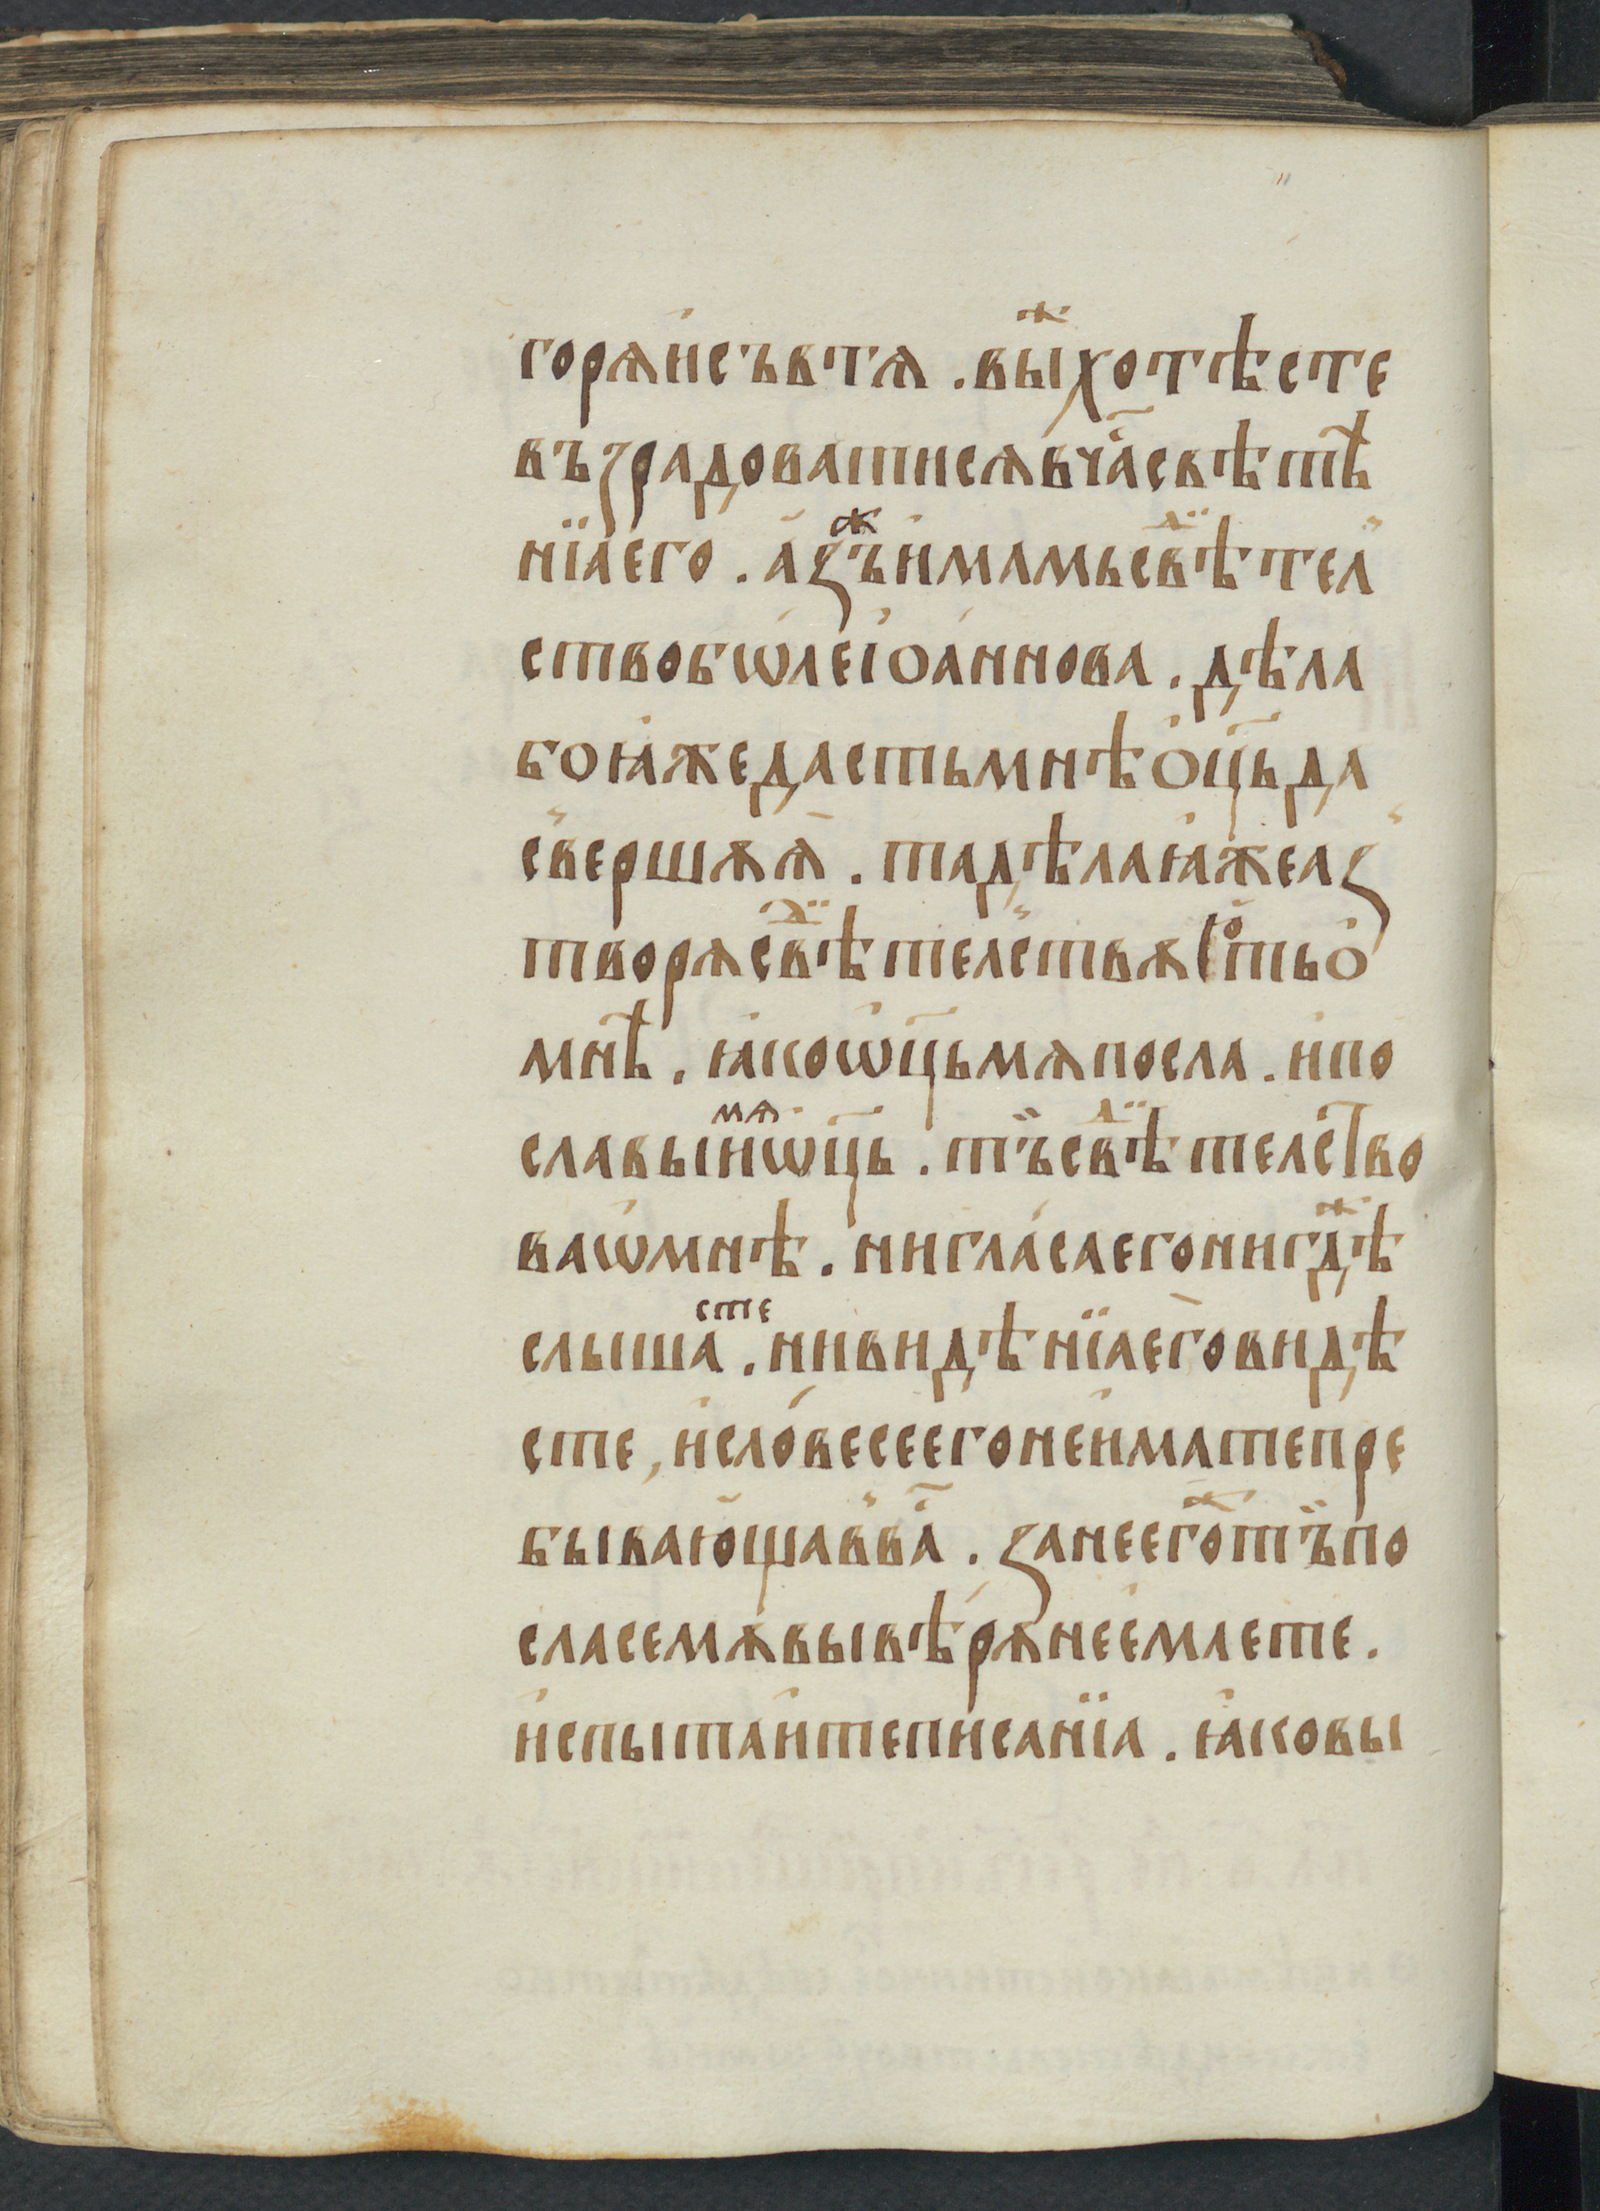 горѧ и҆съвтѧ . выⷤ хотѣсте
възрадоватисѧ вчаⷭ҇ свѣтѣ
нїа его . а҆зъⷤ и҆мамь свⷣѣтел
ство бѡ́ле і҆оа́ннова . дѣла
бо ꙗ҆же дасть мнѣ ѻ҆ц҃ь да
свершѧ ѧ҆ . та дѣла ꙗ҆же аз
творѧ свⷣѣтелствѧють ѻ
мнѣ . ꙗ҆ко ѡ҆ц҃ь мѧ посла . и҆ по
славыи мѧ ѡ҆ц҃ь . тъ свⷣѣтелство
ва ѡ҆ мнѣ . ни гла́са его нигдⷤѣ
слышасте . ни видѣнїа его видѣ
сте , и҆ словесе его не имате пре
бывающа в ваⷭ҇ . зане егоⷤ тъ по
сла семѧ вы вѣрѧ не емлете .
и҆спыта́ите писанїа . ꙗ҆ко вы